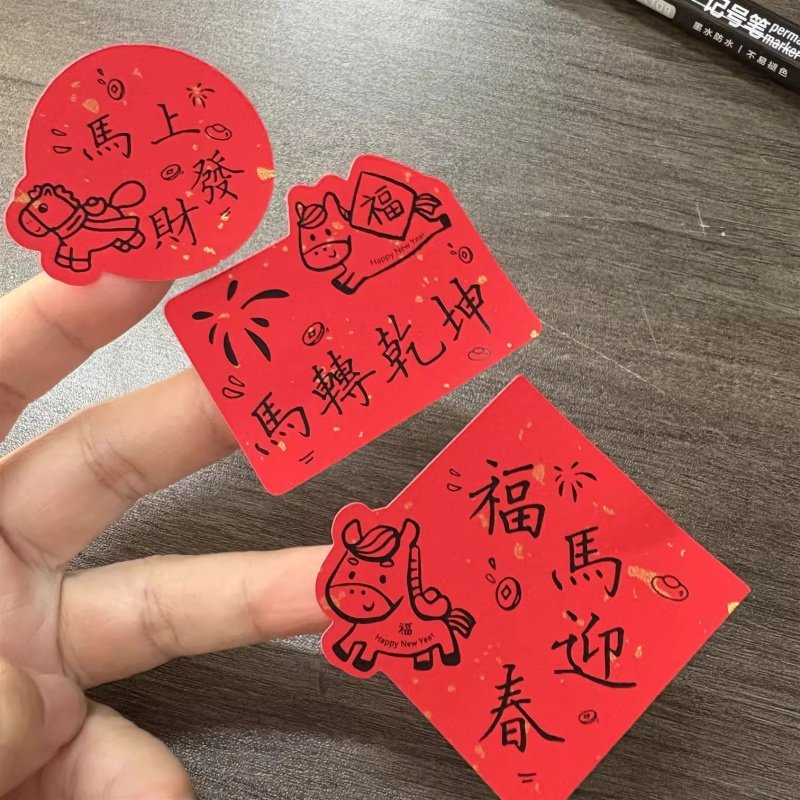 記号笔
perma
marker
墨水防水 | 不易褪色
馬上
發
財
福
Happy New Year
馬轉乾坤
福
馬
迎
春
福
Happy New Year